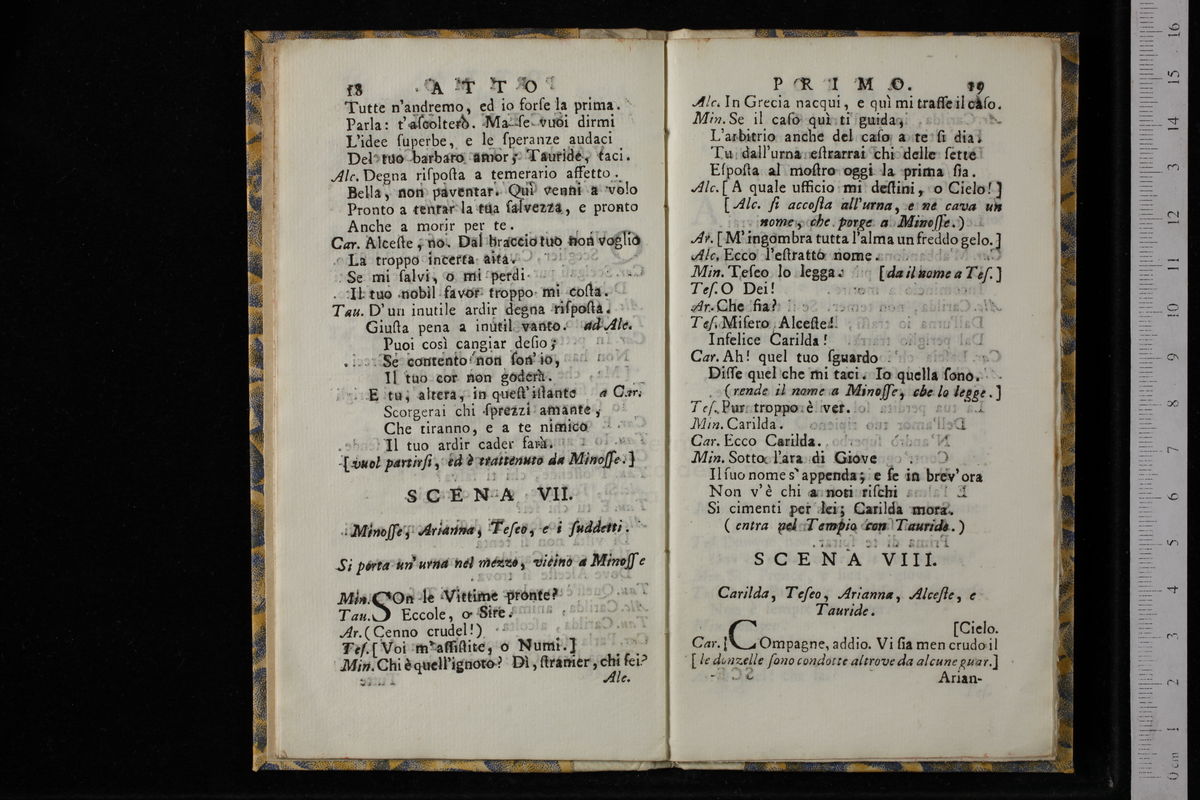 18 A T T O
Tutte n'andremo, ed io forſe la prima.
Parla: t'aſcolterò. Ma ſe vuoi dirmi
L'idee ſuperbe, e le ſperanze audaci
Del tuo barbaro amor, Tauride, taci.
Alc. Degna riſpoſta a temerario affetto.
Bella, non paventar. Quì venni a volo
Pronto a tentar la tua ſalvezza, e pronto
Anche a morir per te.
Car. Alceſte, no. Dal braccio tuo non voglio
La troppo incerta aita.
Se mi ſalvi, o mi perdi
Il tuo nobil favor troppo mi coſta.
Tau. D'un inutile ardir degna riſpoſta.
Giuſta pena a inutil vanto. ad Alc.
Puoi così cangiar deſio;
Se contento non ſon'io,
Il tuo cor non goderà.
E tu, altera, in queſt'iſtante a Car.
Scorgerai chi ſprezzi amante,
Che tiranno, e a te nimico
Il tuo ardir cader farà.
[vuol partirſi, ed è trattenuto da Minoſſe.]
SCENA VII.
Minoſſe, Arianna, Teſeo, e i ſuddetti.
Si porta un'urna nel mezzo, vicino a Minoſſe
Min. SOn le Vittime pronte?
Tau. Eccole, o Sire.
Ar. (Cenno crudel!)
Teſ. [Voi m'aſſiſtite, o Numi.]
Min. Chi è quell'ignoto? Dì, ſtranier, chi ſei?
Alc.
PRIMO. 19
Alc. In Grecia nacqui, e quì mi traſſe il caſo.
Min. Se il caſo quì ti guida,
L'arbitrio anche del caſo a te ſi dia.
Tu dall'urna eſtrarrai chi delle ſette
Eſpoſta al moſtro oggi la prima ſia.
Alc. [A quale ufficio mi deſtini, o Cielo!]
[Alc. ſi accoſta all'urna, e ne cava un
nome, che porge a Minoſſe.)
Ar. [M'ingombra tutta l'alma un freddo gelo.]
Alc. Ecco l'eſtratto nome.
Min. Teſeo lo legga. [da il nome a Teſ.]
Teſ. O Dei!
Ar. Che fia?
Teſ. Miſero Alceſte!
Infelice Carilda!
Car. Ah! quel tuo ſguardo
Diſſe quel che mi taci. Io quella ſono.
(rende il nome a Minoſſe, che lo legge.]
Teſ. Pur troppo è ver.
Min. Carilda.
Car. Ecco Carilda.
Min. Sotto l'ara di Giove
Il ſuo nome s'appenda; e ſe in brev'ora
Non v'è chi a noti riſchi
Si cimenti per lei; Carilda mora.
(entra nel Tempio con Tauride.)
SCENA VIII.
Carilda, Teſeo, Arianna, Alceſte, e
Tauride.
[Cielo.
Car. COmpagne, addio. Vi ſia men crudo il
[le donzelle ſono condotte altrove da alcune guar.]
Arian-
0 cm 1 2 3 4 5 6 7 8 9 10 11 12 13 14 15 16